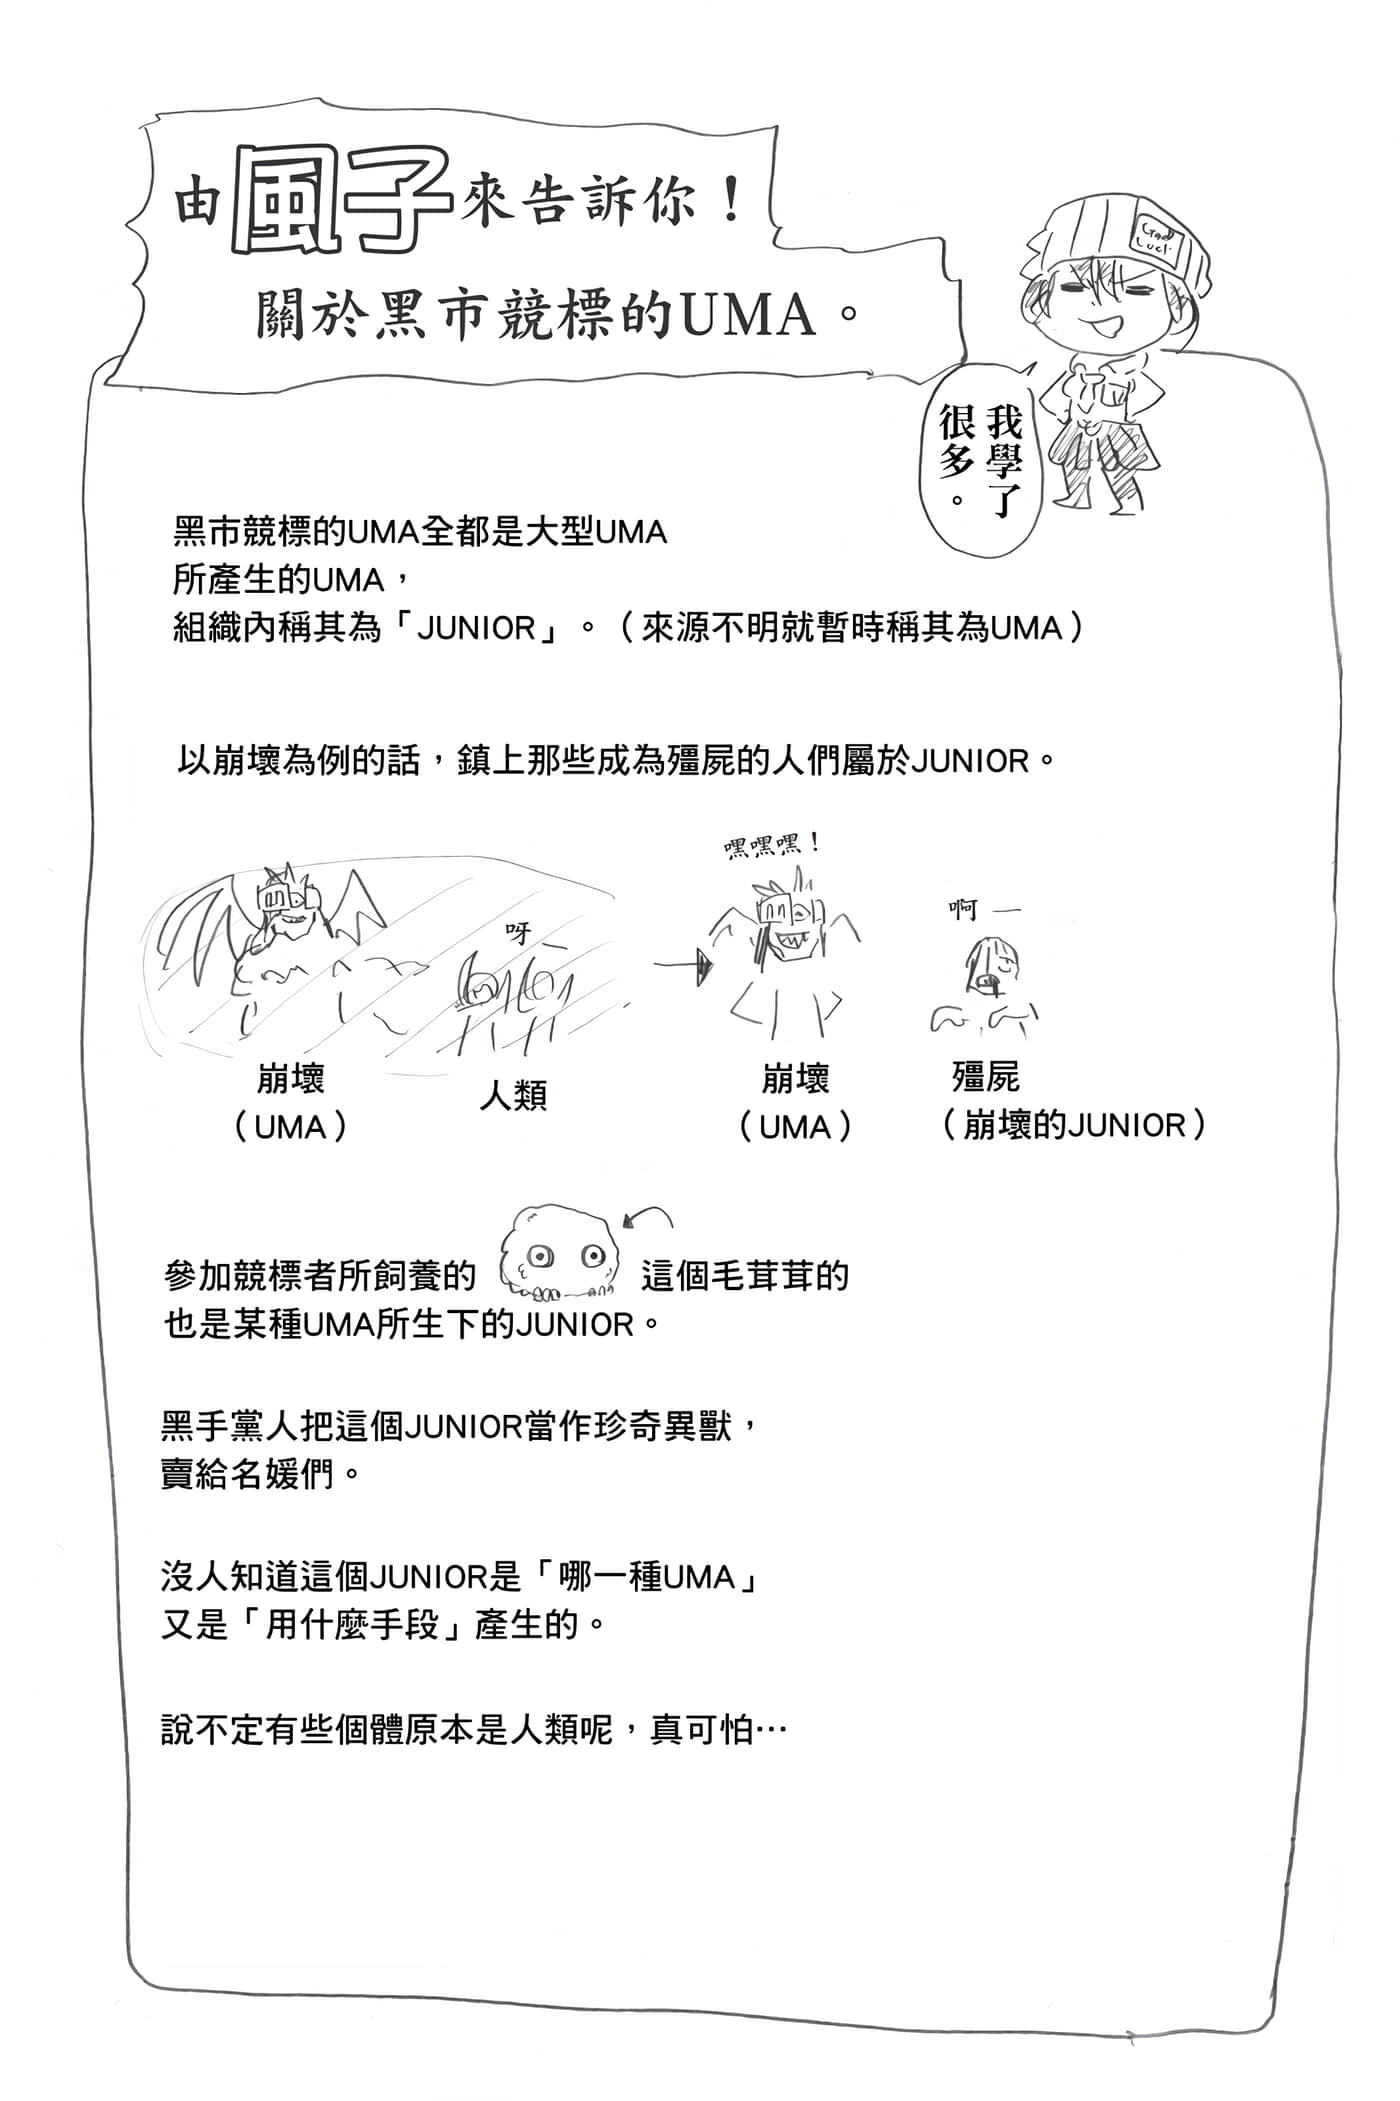 由風子來告訴你！
關於黑市競標的UMA。
Good
Luck
我學了
很多。
黑市競標的UMA全都是大型UMA
所產生的UMA，
組織內稱其為「JUNIOR」。（來源不明就暫時稱其為UMA）
以崩壞為例的話，鎮上那些成為殭屍的人們屬於JUNIOR。
呀—
嘿嘿嘿！
啊—
崩壞
（UMA）
人類
崩壞
（UMA）
殭屍
（崩壞的JUNIOR）
參加競標者所飼養的 這個毛茸茸的
也是某種UMA所生下的JUNIOR。
黑手黨人把這個JUNIOR當作珍奇異獸，
賣給名媛們。
沒人知道這個JUNIOR是「哪一種UMA」
又是「用什麼手段」產生的。
說不定有些個體原本是人類呢，真可怕…